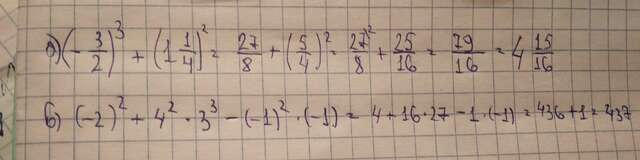 а) (- 3/2)³ + (1 1/4)² = 27/8 + (5/4)² = 27²/8 + 25/16 = 79/16 = 4 15/16
б) (-2)² + 4² · 3³ - (-1)² · (-1) = 4 + 16 · 27 - 1 · (-1) = 436 + 1 = 437